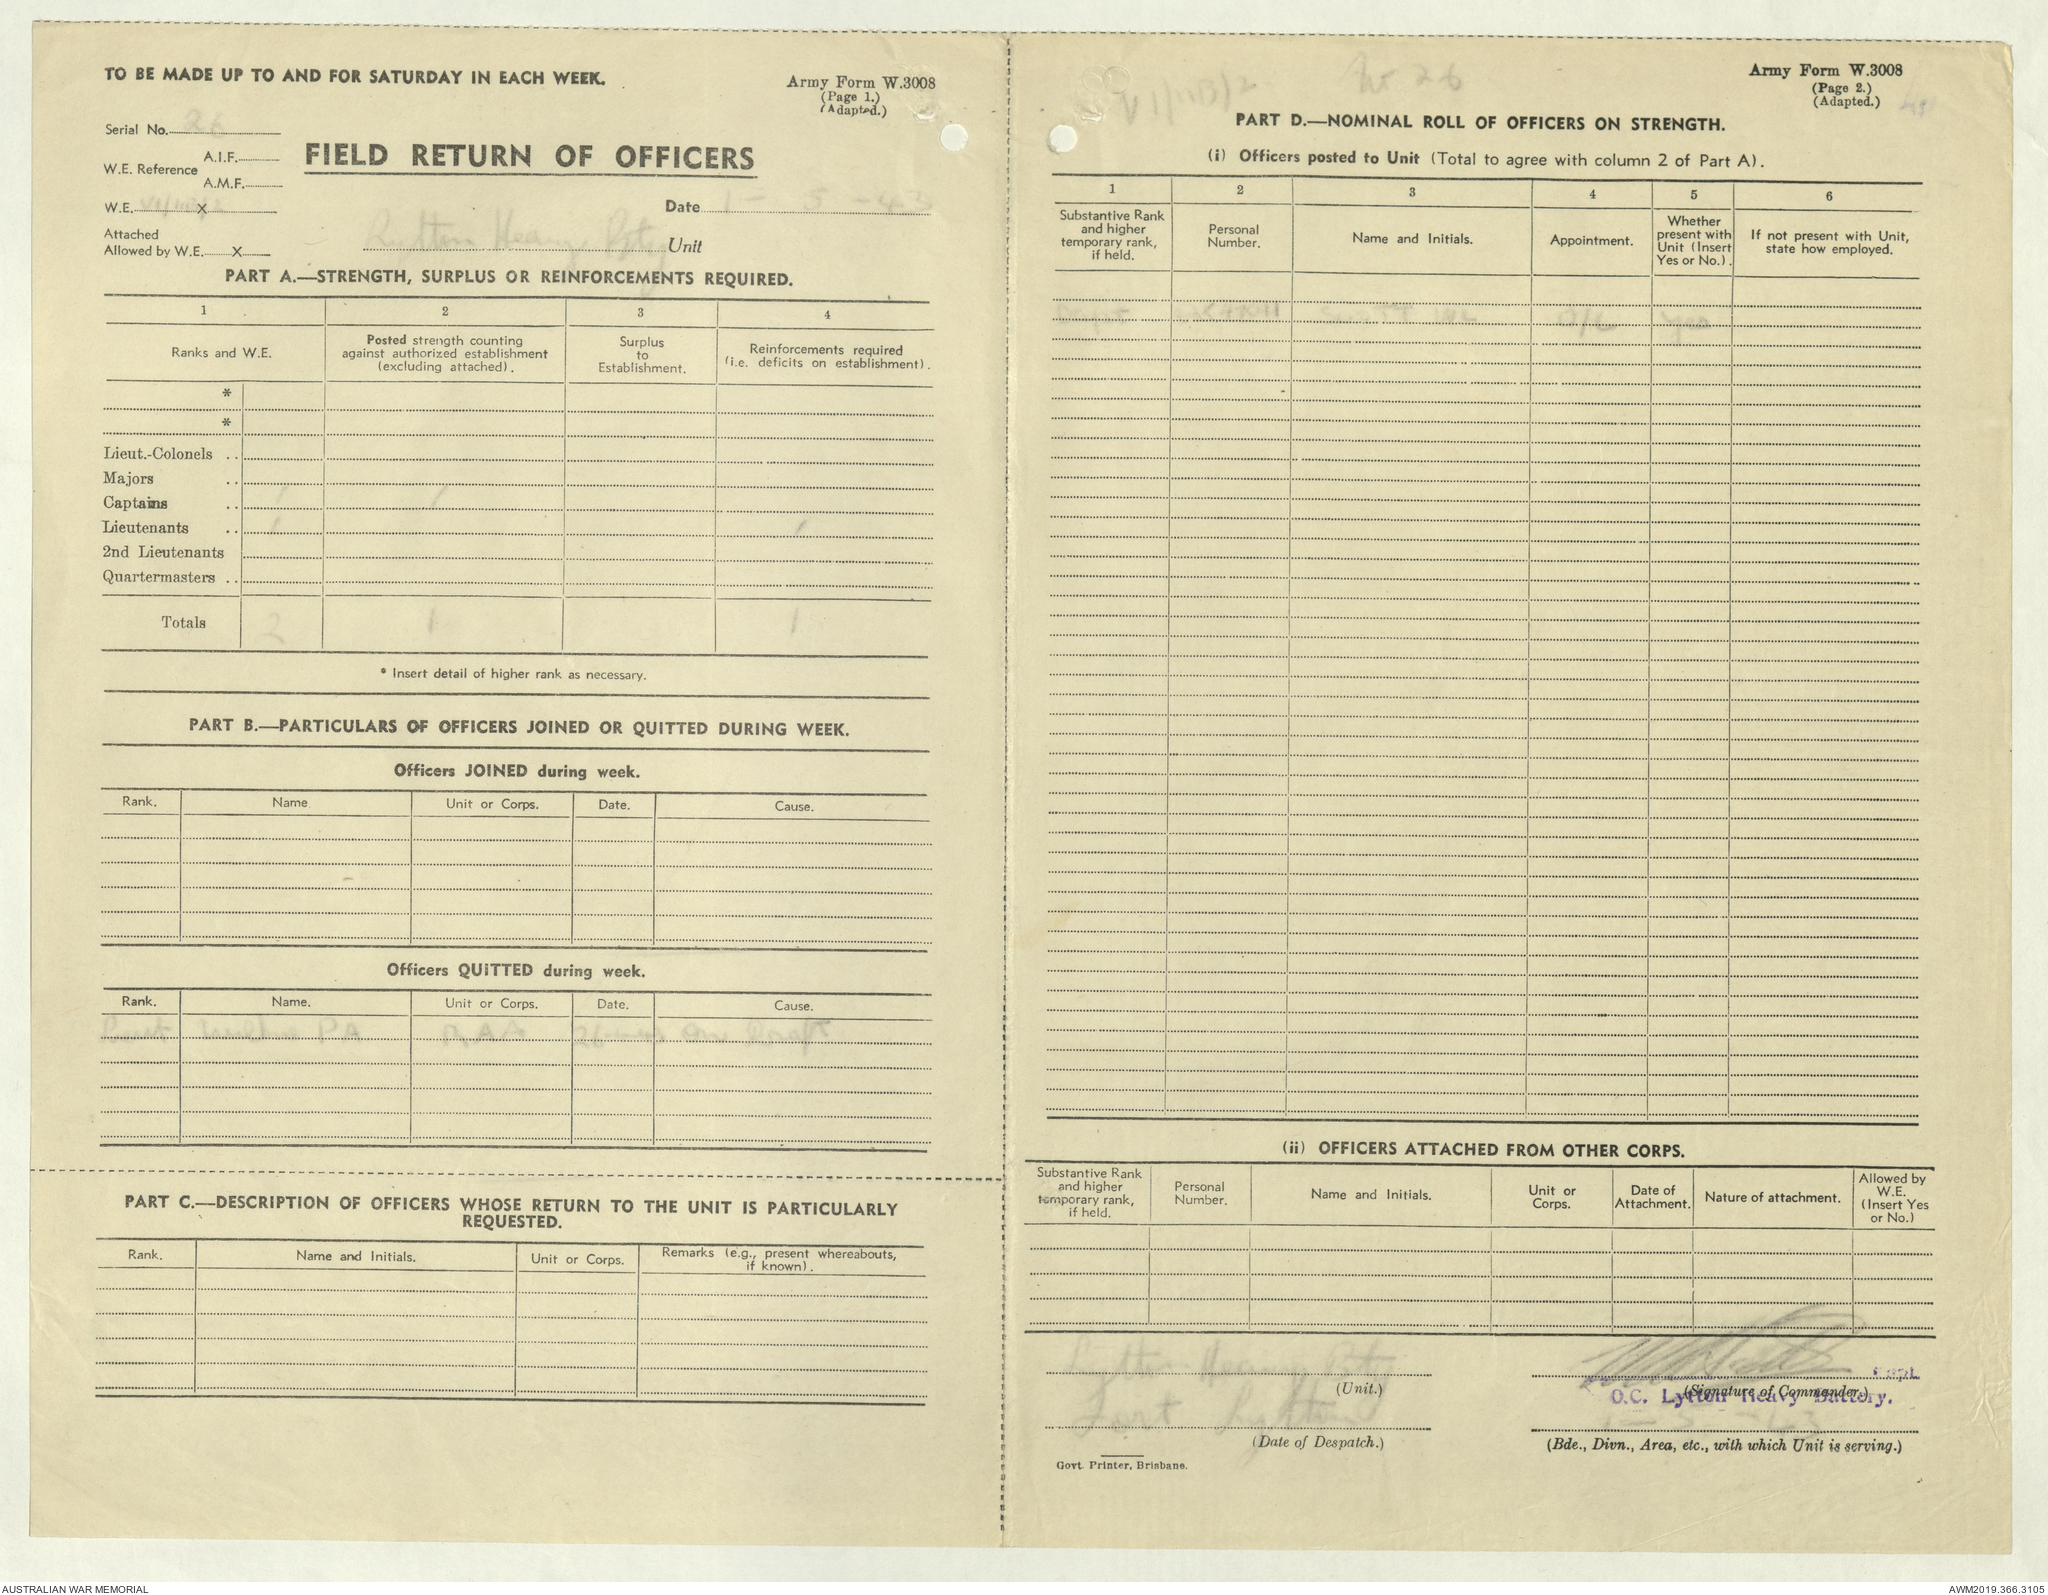 TO BE MADE UP TO AND FOR SATURDAY IN EACH WEEK.
Army Form W.3008
(Page 1.)
(Adapted.)
Serial No. 26
W.E. Reference A.I.F.
A.M.F.
FIELD RETURN OF OFFICERS
W.E. VI/IIIB/2 X
Date 1 - 5 - 43
Attached
Allowed by W.E. X
Lytton Heavy Bty Unit
PART A.—STRENGTH, SURPLUS OR REINFORCEMENTS REQUIRED.
1 2 3 4
Ranks and W.E.
Posted strength counting against authorized establishment (excluding attached).
Surplus to Establishment.
Reinforcements required (i.e. deficits on establishment).
*
*
Lieut.-Colonels ..
Majors ..
Captains .. 1 1
Lieutenants .. 1 1
2nd Lieutenants
Quartermasters ..
Totals 2 1 1
* Insert detail of higher rank as necessary.
PART B.—PARTICULARS OF OFFICERS JOINED OR QUITTED DURING WEEK.
Officers JOINED during week.
Rank. Name Unit or Corps. Date. Cause.
Officers QUITTED during week.
Rank. Name. Unit or Corps. Date. Cause.
Lieut P A RAA
PART C.—DESCRIPTION OF OFFICERS WHOSE RETURN TO THE UNIT IS PARTICULARLY
REQUESTED.
Rank. Name and Initials. Unit or Corps. Remarks (e.g., present whereabouts, if known).
VI/IIIB/2
26
Army Form W.3008
(Page 2.)
(Adapted.)
PART D.—NOMINAL ROLL OF OFFICERS ON STRENGTH.
(i) Officers posted to Unit (Total to agree with column 2 of Part A).
1 2 3 4 5 6
Substantive Rank and higher temporary rank, if held.
Personal Number.
Name and Initials.
Appointment.
Whether present with Unit (Insert Yes or No.).
If not present with Unit, state how employed.
Capt O/C yes
(ii) OFFICERS ATTACHED FROM OTHER CORPS.
Substantive Rank and higher temporary rank, if held.
Personal Number.
Name and Initials.
Unit or Corps.
Date of Attachment.
Nature of attachment.
Allowed by W.E. (Insert Yes or No.)
Lytton Heavy Bty
(Unit.)
Capt.
(Signature of Commander.)
O.C. Lytton Heavy Battery.
Fort Lytton
1 - 5 - 43
(Date of Despatch.)
(Bde., Divn., Area, etc., with which Unit is serving.)
Govt. Printer, Brisbane.
AUSTRALIAN WAR MEMORIAL
AWM2019.366.3105